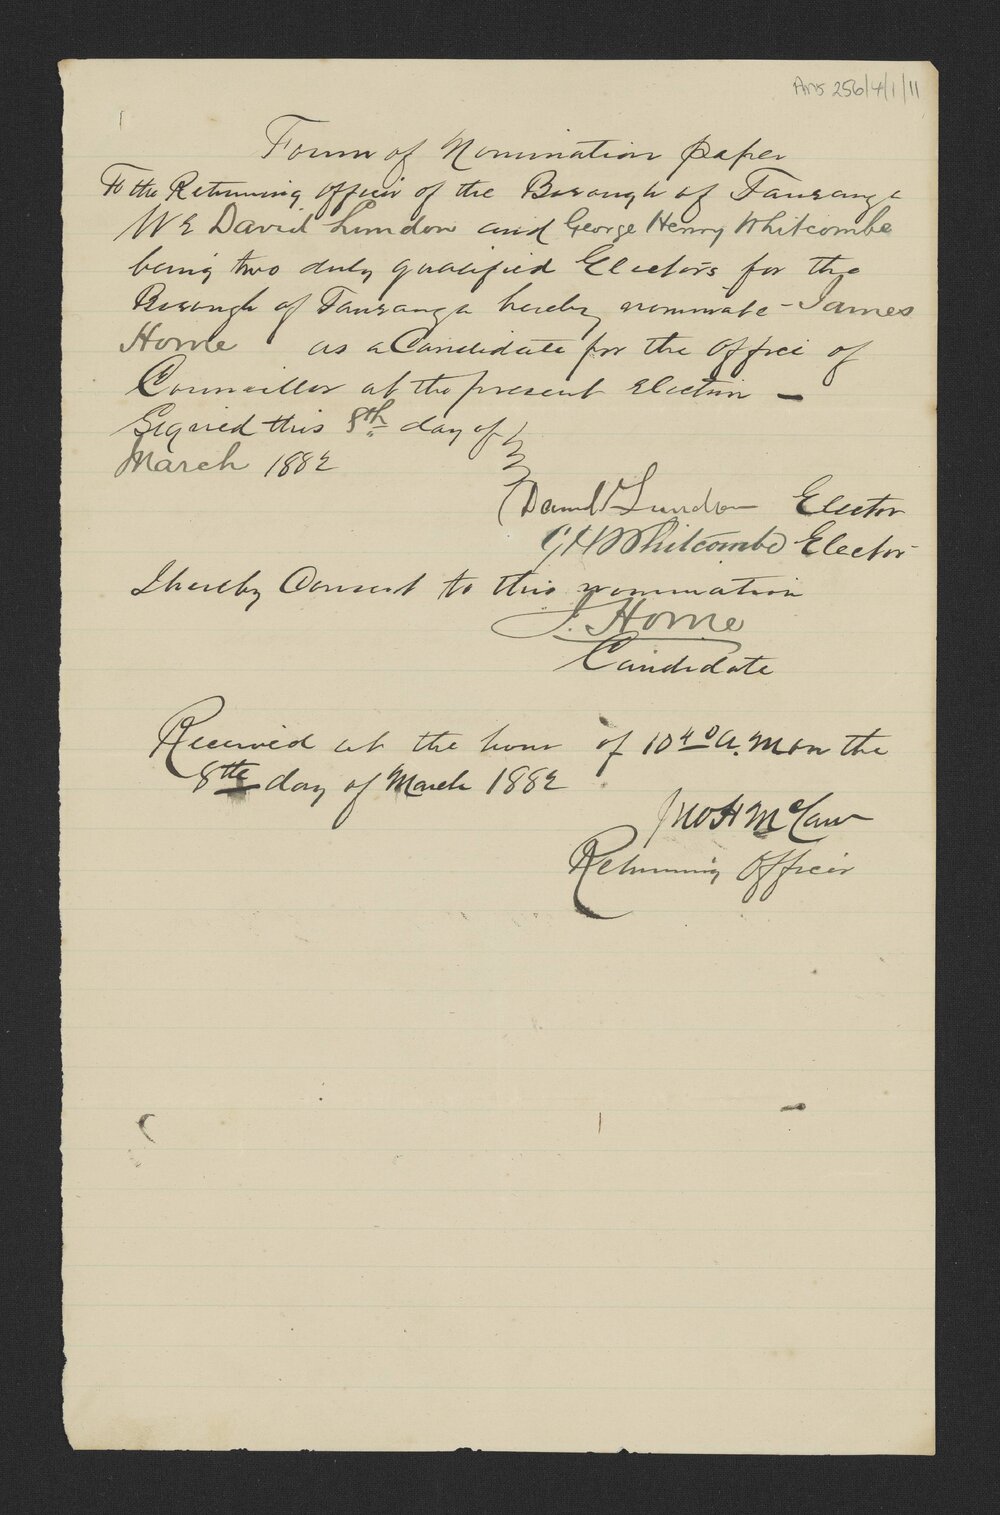 Ams 256/4/1/11
Form of Nomination paper
To the Returning officer of the Borough of Tauranga
We David Lundon and George Henry Whitcombe
being two duly qualified Electors for the
Borough of Tauranga hereby nominate - James
Horne as a Candidate for the Office of
Councillor at the present Election -
Signed this 8th day of
March 1882
David Lundon Elector
G H Whitcombe Elector
I hereby Consent to this nomination
J. Horne
Candidate
Received at the hour of 10 40 A.M on the
8th day of March 1882
Jno H McCaw
Returning Officer